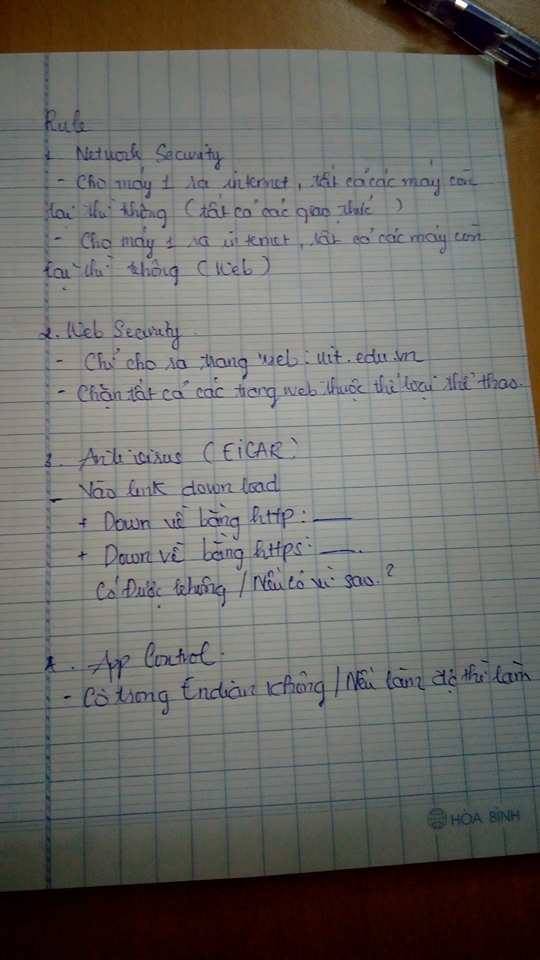 Rule
1. Network Security
- Cho máy 1 ra internet, tất cả các máy còn
lại thì không (tất cả các giao thức)
- Cho máy 1 ra internet, tất cả các máy còn
lại thì không (Web)
2. Web Security.
- Chỉ cho ra trang web: uit.edu.vn
- Chặn tất cả các trang web thuộc thể loại thể thao.
3. Anti virus (EICAR)
- Vào link download
+ Down về bằng http: —
+ Down về bằng https: —.
Có Được không / Nếu có vì sao?
4. App Control.
- Có trong Endian không / Nếu làm đc thì làm
HÒA BÌNH